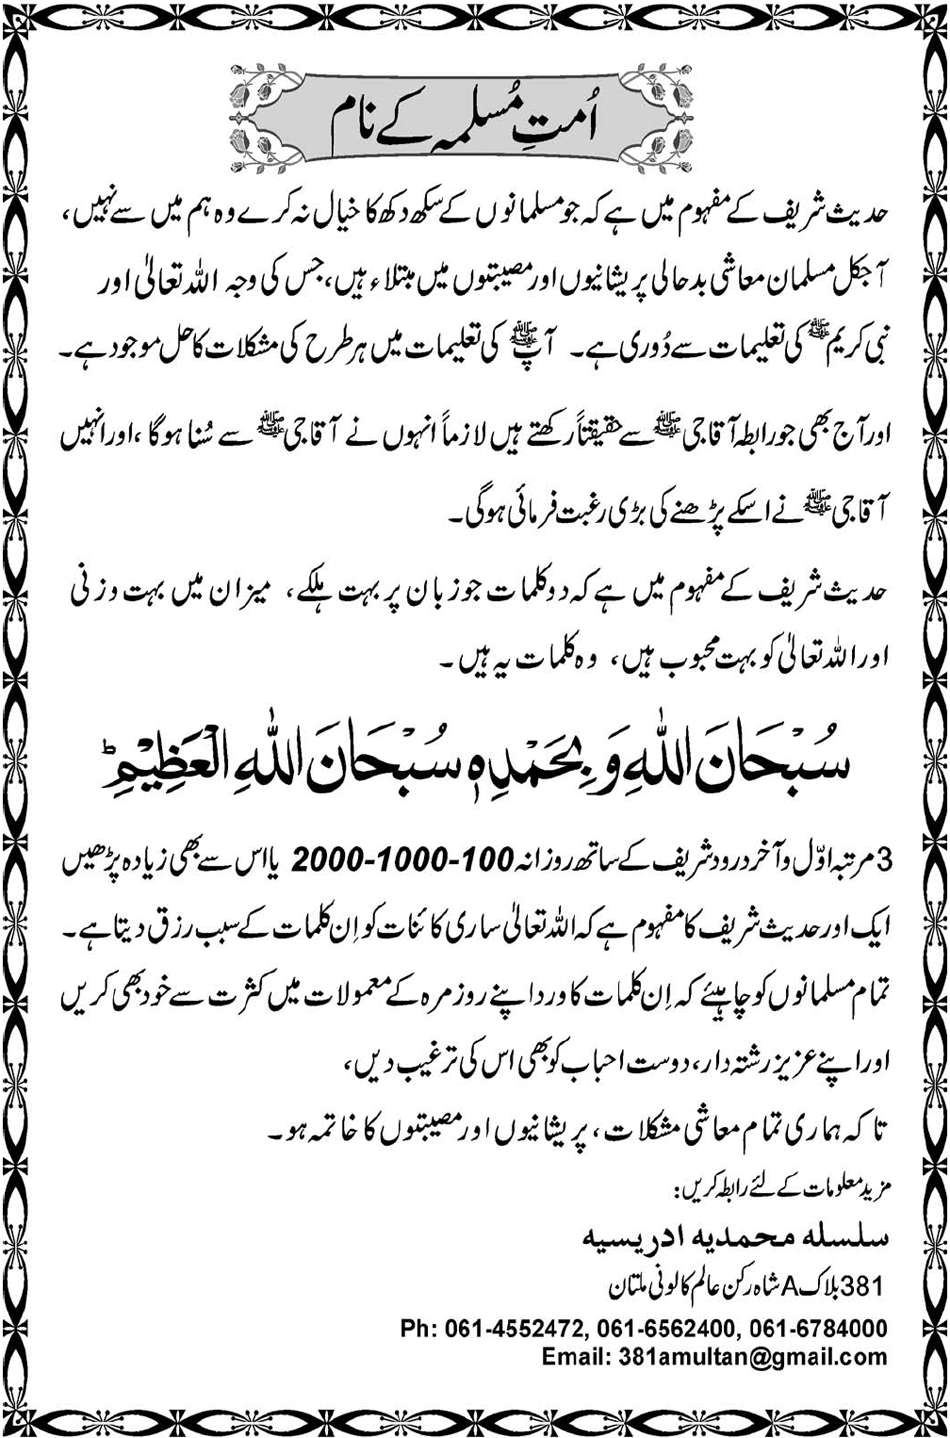 اُمتِ مُسلمہ کے نام
حدیث شریف کے مفہوم میں ہے کہ جو مسلمانوں کے سکھ دکھ کا خیال نہ کرے وہ ہم میں سے نہیں،
آجکل مسلمان معاشی بدحالی پریشانیوں اور مصیبتوں میں مبتلاء ہیں، جس کی وجہ اللہ تعالیٰ اور
نبی کریم ﷺ کی تعلیمات سے دُوری ہے۔ آپ ﷺ کی تعلیمات میں ہر طرح کی مشکلات کا حل موجود ہے۔
اور آج بھی جو رابطہ آقا جی ﷺ سے حقیقتاً رکھتے ہیں لازماً انہوں نے آقا جی ﷺ سے سُنا ہوگا ،اور انہیں
آقا جی ﷺ نے اسکے پڑھنے کی بڑی رغبت فرمائی ہوگی۔
حدیث شریف کے مفہوم میں ہے کہ دو کلمات جو زبان پر بہت ہلکے، میزان میں بہت وزنی
اور اللہ تعالیٰ کو بہت محبوب ہیں، وہ کلمات یہ ہیں۔
سُبْحَانَ اللّٰهِ وَ بِحَمْدِهٖ سُبْحَانَ اللّٰهِ الْعَظِيْمِؕ
3 مرتبہ اوّل و آخر درود شریف کے ساتھ روزانہ 100-1000-2000 یا اس سے بھی زیادہ پڑھیں
ایک اور حدیث شریف کا مفہوم ہے کہ اللہ تعالیٰ ساری کائنات کو اِن کلمات کے سبب رزق دیتا ہے۔
تمام مسلمانوں کو چاہیئے کہ اِن کلمات کا ورد اپنے روزمرہ کے معمولات میں کثرت سے خود بھی کریں
اور اپنے عزیز رشتہ دار، دوست احباب کو بھی اس کی ترغیب دیں،
تا کہ ہماری تمام معاشی مشکلات، پریشانیوں اور مصیبتوں کا خاتمہ ہو۔
مزید معلومات کے لئے رابطہ کریں:
سلسلہ محمدیہ ادریسیہ
381 بلاک A شاہ رکن عالم کالونی ملتان
Ph: 061-4552472, 061-6562400, 061-6784000
Email: 381amultan@gmail.com